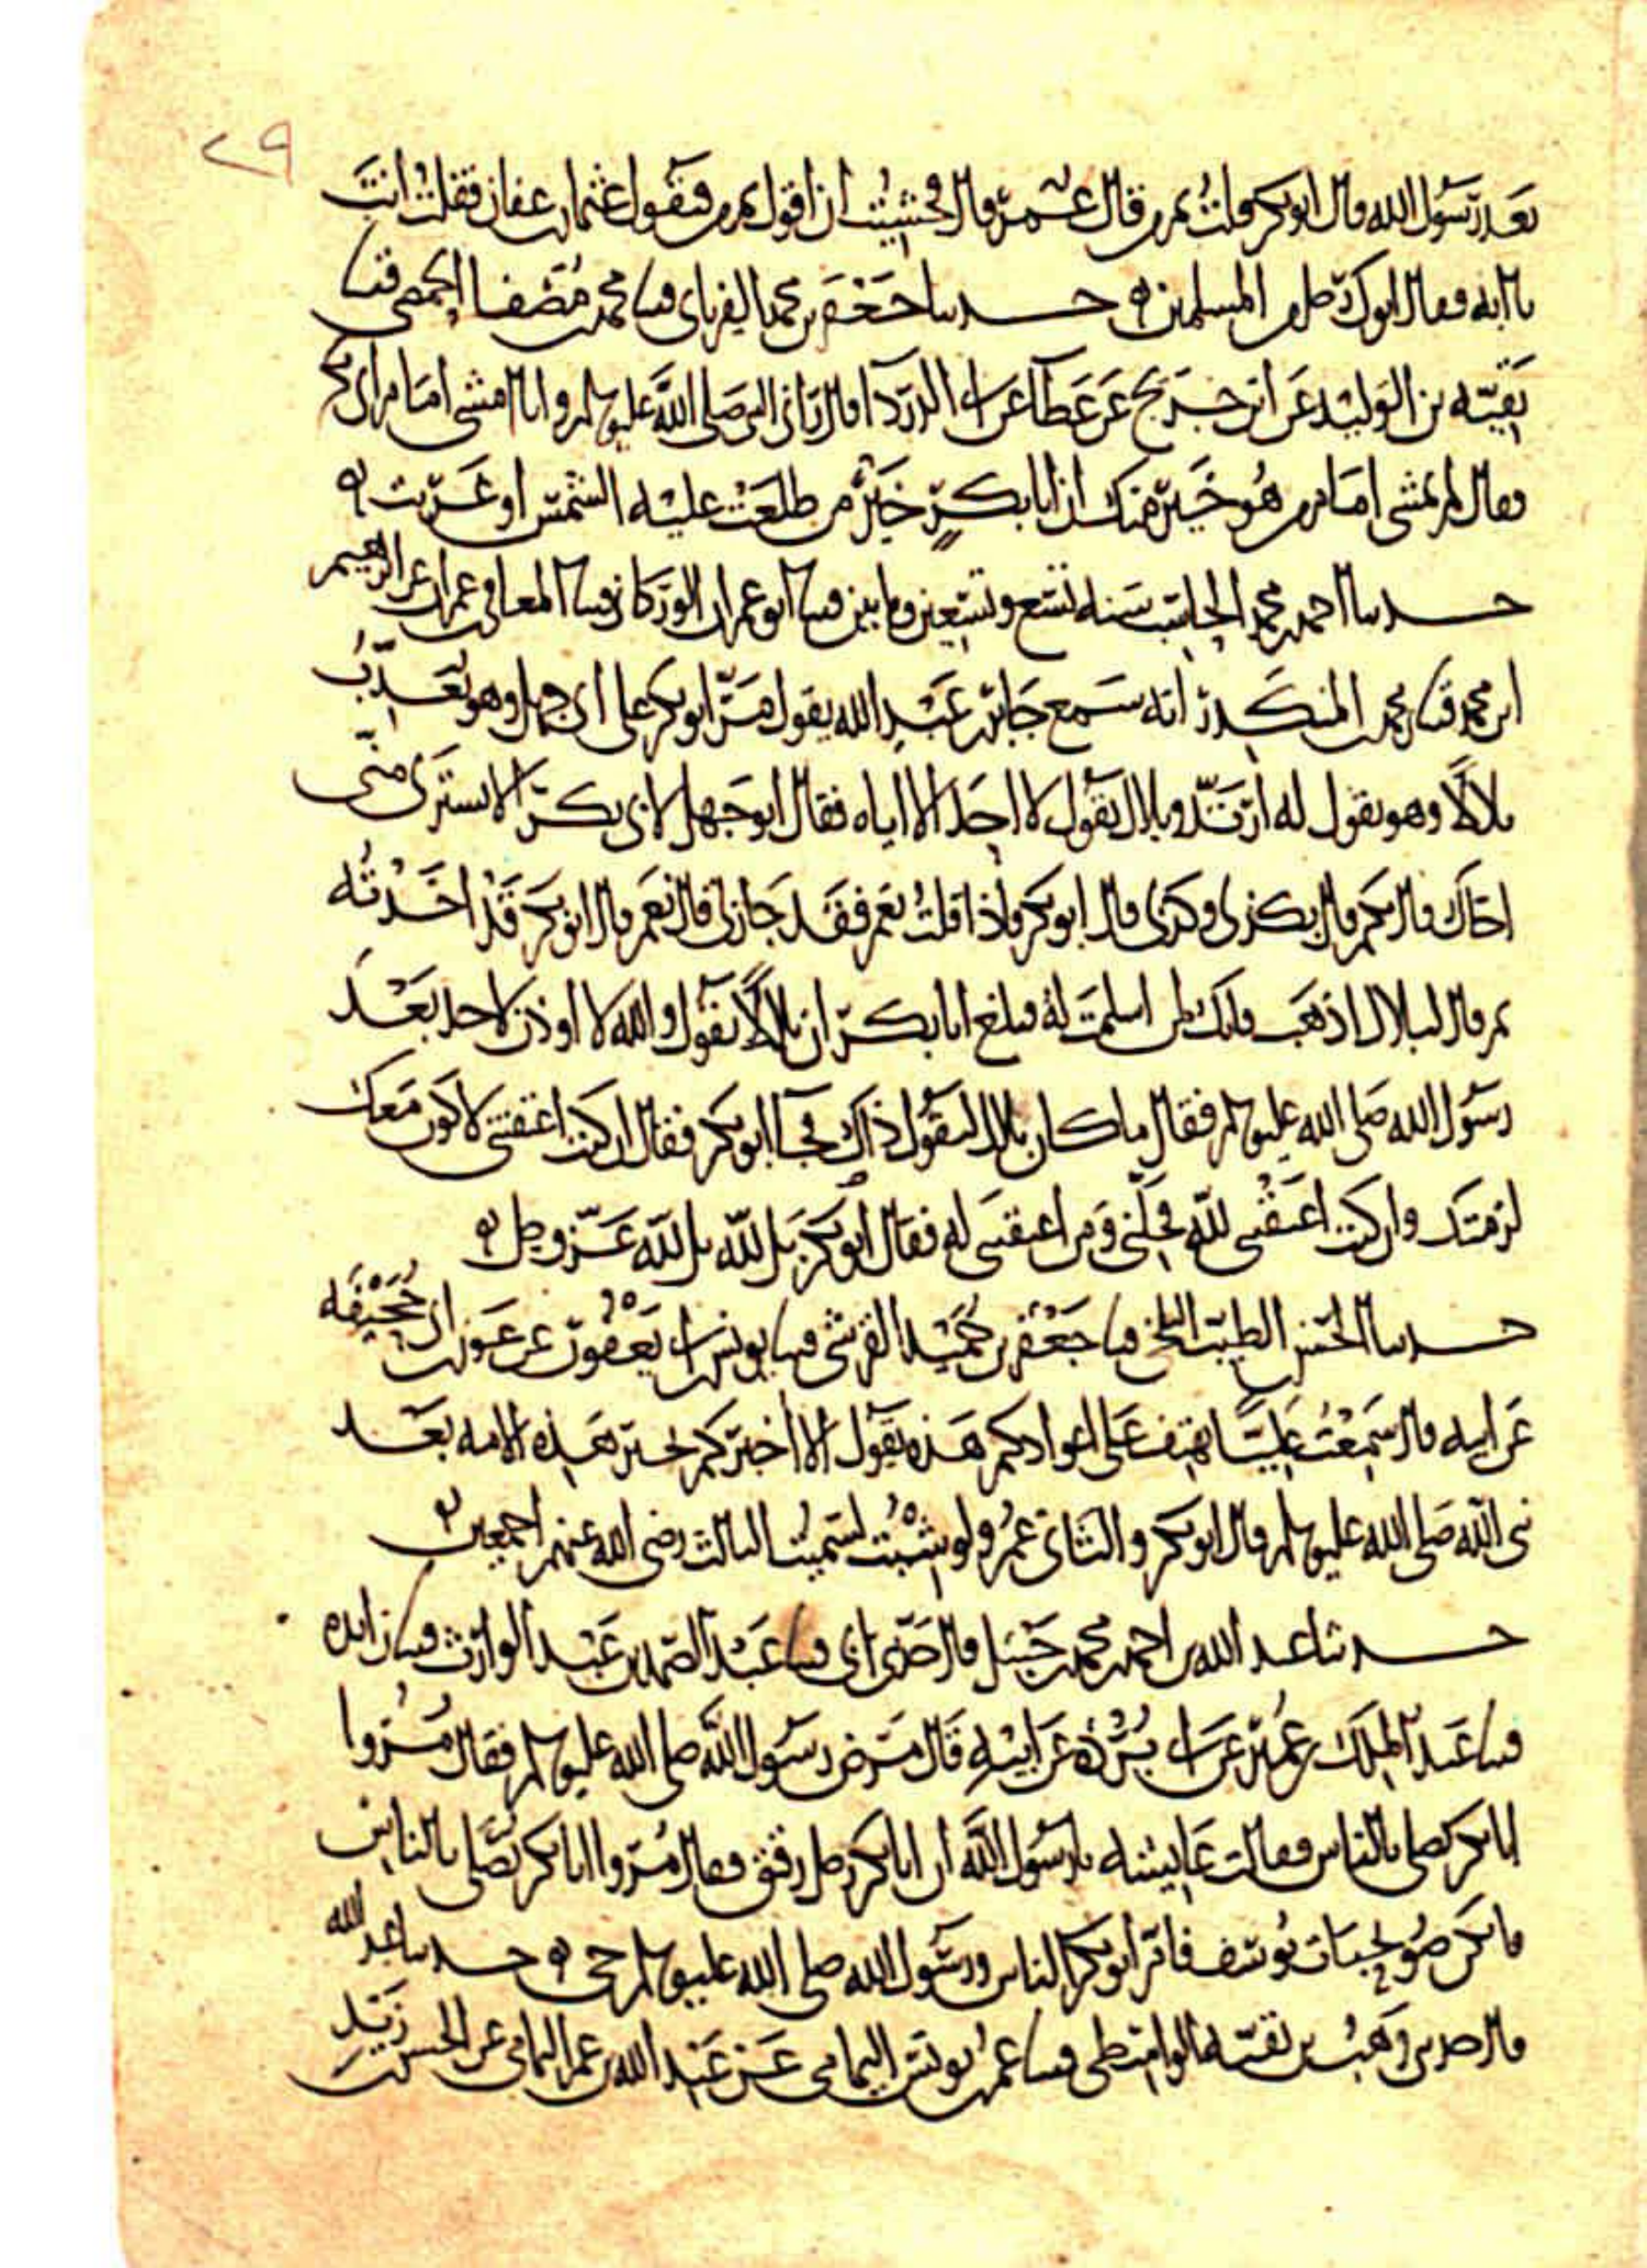 ٢٩
بعد رسول الله قال ابو بكر قلت ثم من قال عمر قال فخشيت ان اقول ثم من فيقول عثمان بن عفان فقلت انت
يا ابه فقال ابوك رجل من المسلمين ه حدثنا جعفر بن محمد الفريابي قثنا محمد بن مصفا الحمصي قثنا
بقية بن الوليد عن ابن جريج عن عطا عن ابي الدردا قال راني النبي صلى الله عليه وسلم وانا امشي امام ابي بكر
فقال لم تمشي امام من هو خير منك ان ابا بكر خير من طلعت عليه الشمس او غربت ه
حدثنا احمد بن محمد الحاسب سنه تسع وتسعين ومايتين قثنا ابو عمران الوركاني قثنا المعافى بن عمران عن ابراهيم
ابن محمد قثنا محمد بن المنكدر انه سمع جابر بن عبد الله يقول مر ابو بكر على ابي جهل وهو يعذب
بلالا وهو يقول له ارتد وبلال يقول لا احد الا اياه فقال ابو جهل لابي بكر الا تشتري مني
اخاك قال بكم قال بكذى وكذى قال ابو بكر واذا قلت نعم فقد جاز لي قال نعم قال ابو بكر قد اخذته
ثم قال لبلال اذهب فانك لمن اسلمت له فبلغ ابا بكر ان بلالا يقول والله لا اوذن لاحد بعد
رسول الله صلى الله عليه وسلم فقال ما كان بلال ليقول ذاك فجا ابو بكر فقال ان كنت اعتقتني لاكون معك
لزمتك وان كنت اعتقتني لله فخلني ومن اعتقتني له فقال ابو بكر بل لله بل لله عز وجل ه
حدثنا الحسن بن الطيب البلخي قثنا جعفر بن حميد القرشي قثنا يونس بن ابي يعفور عن عون بن ابي جحيفه
عن ابيه قال سمعت عليا يهتف على اعوادكم هذه يقول الا اخبركم بخير هذه الامه بعد
نبي الله صلى الله عليه وسلم قال ابو بكر والثاني عمر ولو شيت لسميت الثالث رضي الله عنهم اجمعين ه
حدثنا عبد الله بن احمد بن محمد بن حنبل قال حدثني ابي قثنا عبد الصمد بن عبد الوارث قثنا زايده
قثنا عبد الملك بن عمير عن ابن بريده عن ابيه قال مرض رسول الله صلى الله عليه وسلم فقال مروا
ابا بكر يصلي بالناس فقالت عايشه يا رسول الله ان ابا بكر رجل رقيق فقال مروا ابا بكر يصلي بالناس
فانكن صويحبات يوسف فام ابو بكر الناس ورسول الله صلى الله عليه وسلم حي ه حدثنا عبد الله
قال حدثني وهب بن بقيه الواسطي قثنا عمر بن يونس اليمامي عن عبد الله بن عمر اليمامي عن الحسن بن زيد